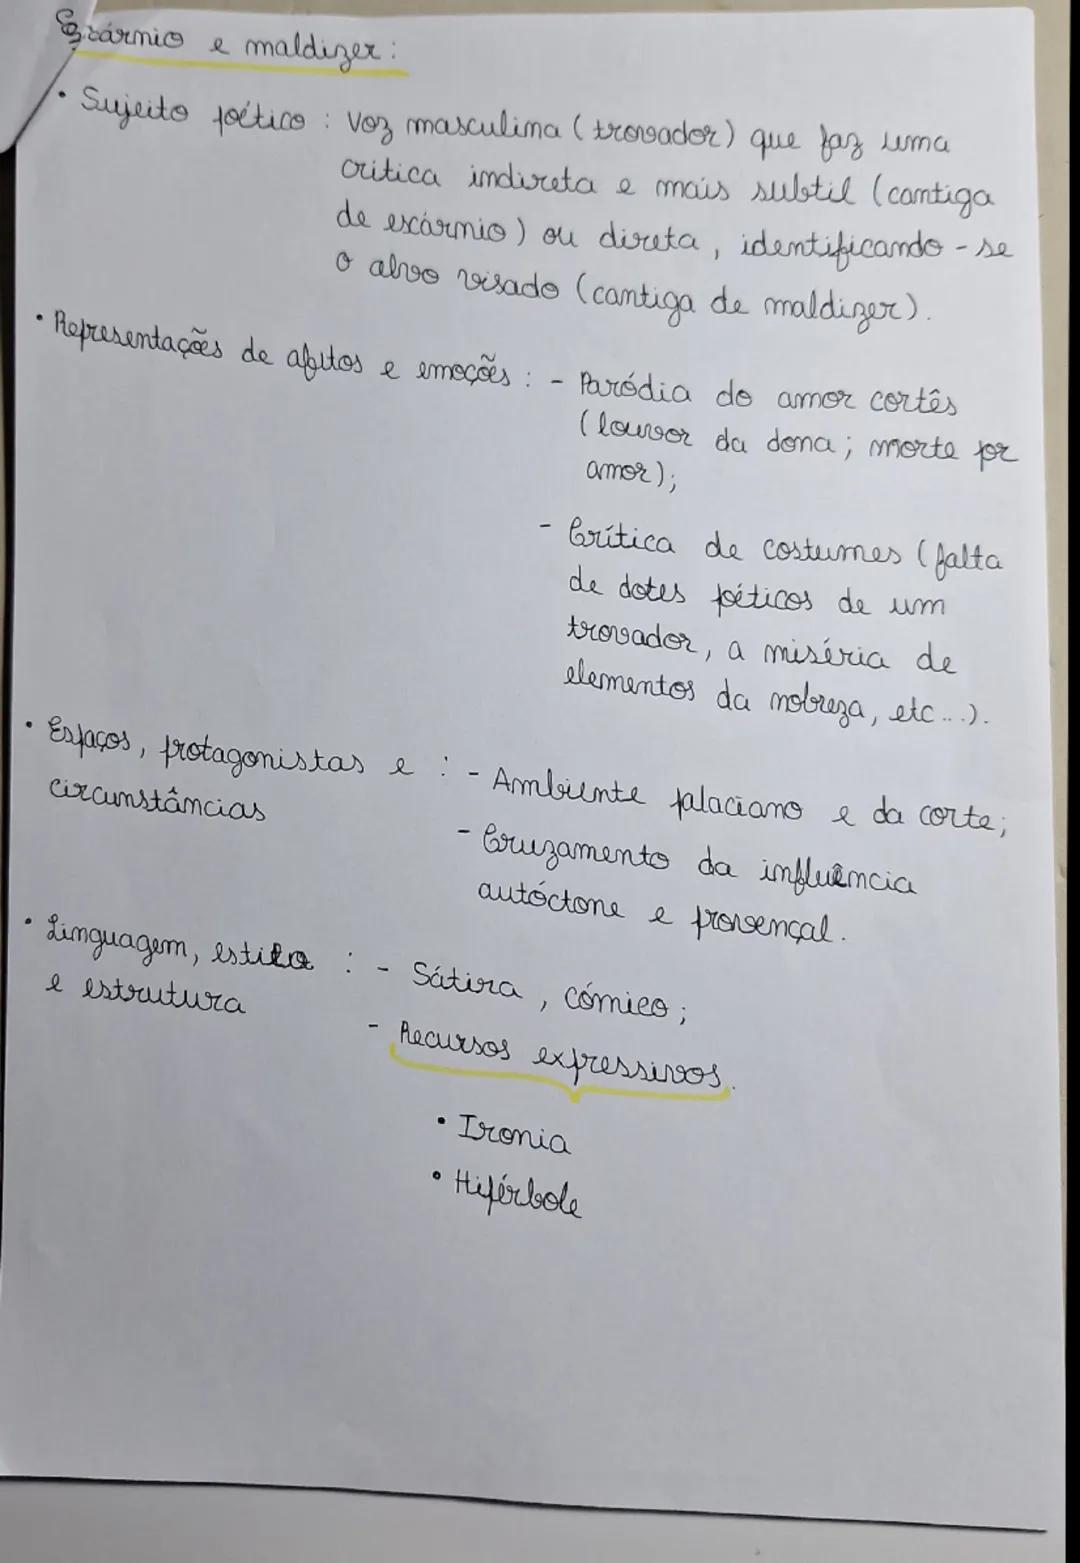 Escárnio e maldizer:
• Sujeito poético : Voz masculina (trovador) que faz uma
crítica indireta e mais subtil (cantiga
de escárnio) ou direta, identificando-se
o alvo visado (cantiga de maldizer).
• Representações de afetos e emoções : - Paródia do amor cortês
(louvor da dona; morte por
amor);
- Crítica de costumes (falta
de dotes poéticos de um
trovador, a miséria de
elementos da nobreza, etc...).
• Espaços, protagonistas e : - Ambiente palaciano e da corte;
circunstâncias
- Cruzamento da influência
autóctone e provençal.
• Linguagem, estilo : - Sátira, cómico;
e estrutura
- Recursos expressivos.
• Ironia
• Hipérbole